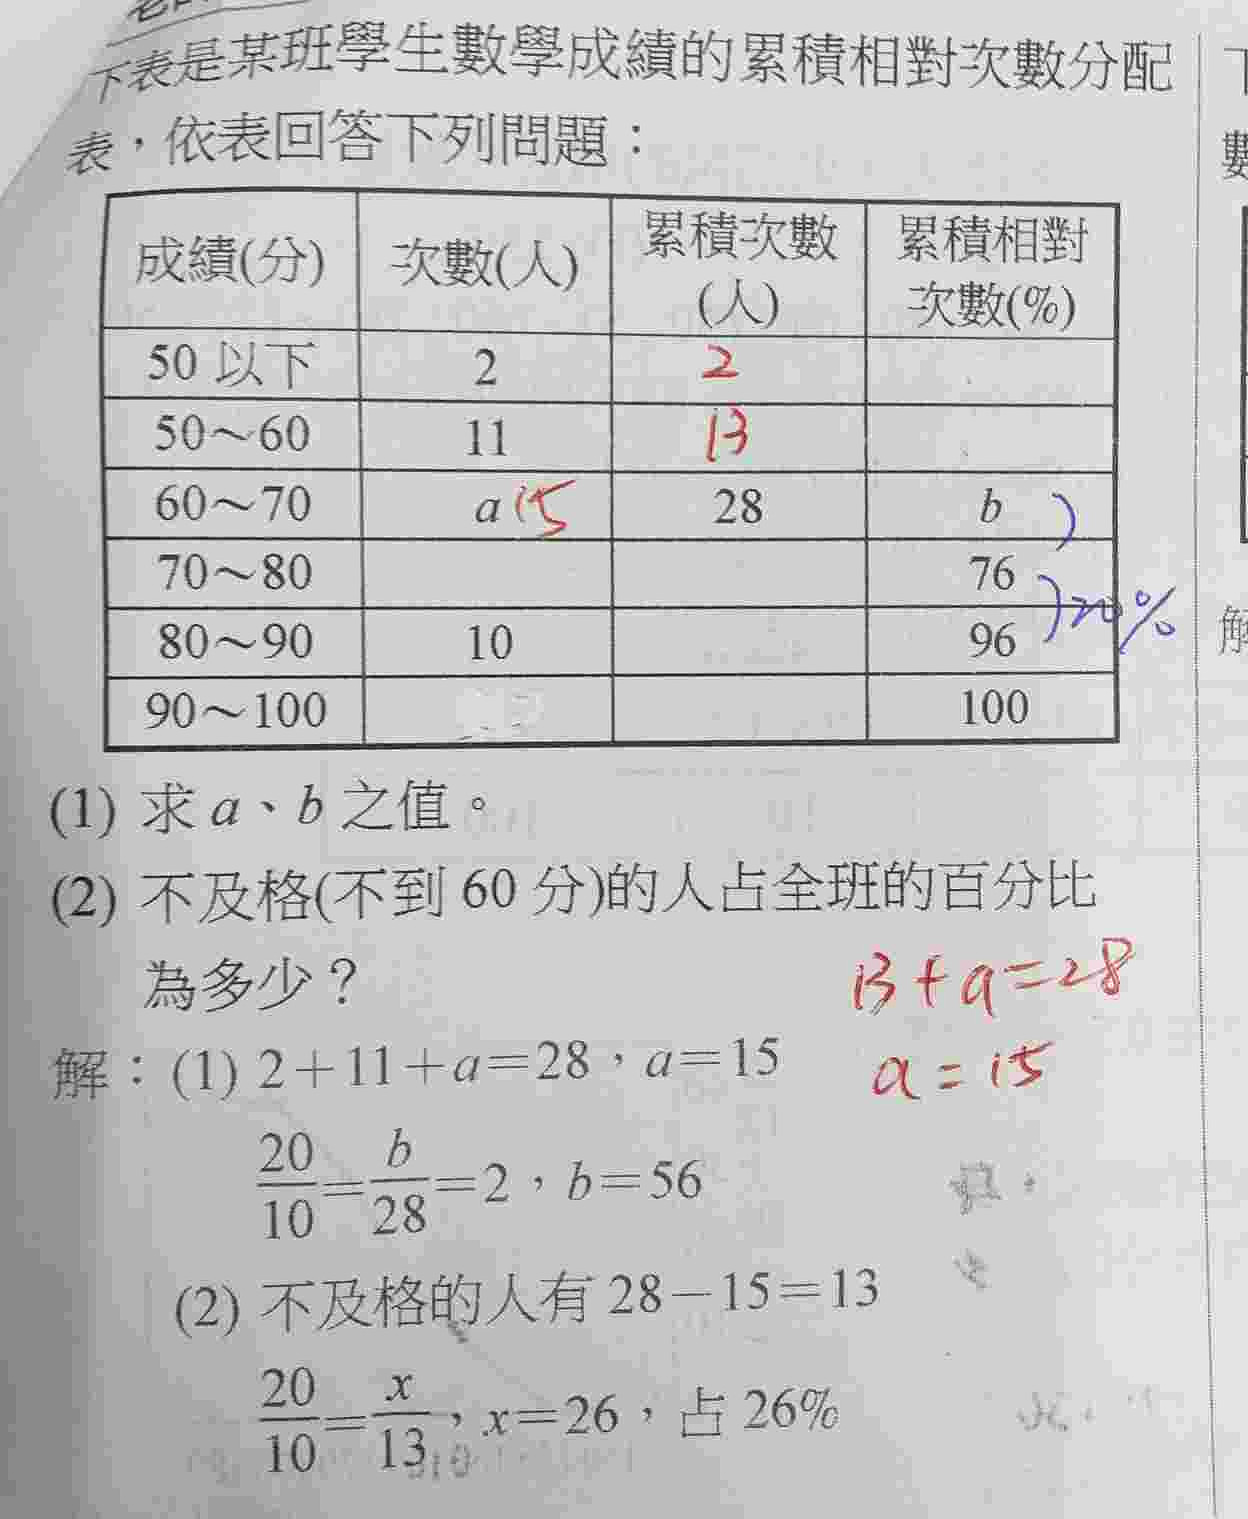 下表是某班學生數學成績的累積相對次數分配
表，依表回答下列問題：
成績(分) 次數(人) 累積次數(人) 累積相對次數(%)
50 以下 2 2
50～60 11 13
60～70 a 15 28 b )
70～80 76
)20%
80～90 10 96
90～100 100
(1) 求 a、b 之值。
(2) 不及格(不到 60 分)的人占全班的百分比
為多少？
13+a=28
解：(1) 2+11+a=28，a=15
a=15
20/10=b/28=2，b=56
(2) 不及格的人有 28－15=13
20/10=x/13，x=26，占 26%